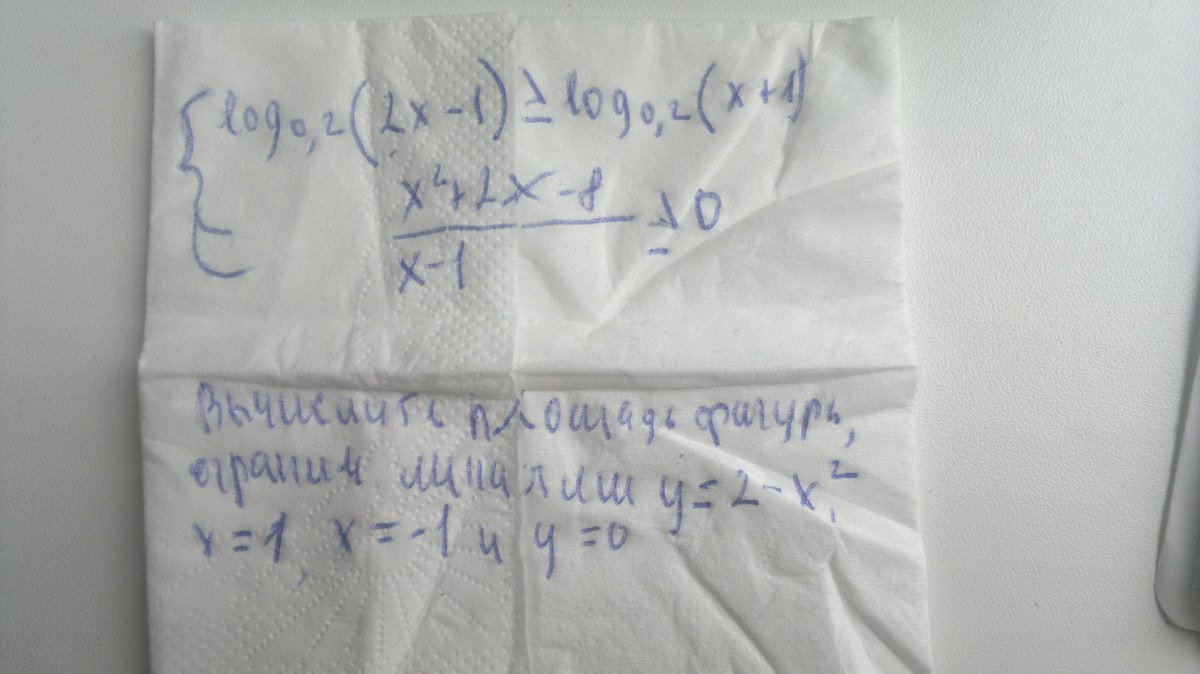 { log₀,₂(2x-1) ≥ log₀,₂(x+1)
x²+2x-8
x-1
≥ 0
Вычислите площадь фигуры,
огранич линиями y=2-x²,
x=1, x=-1 и y=0